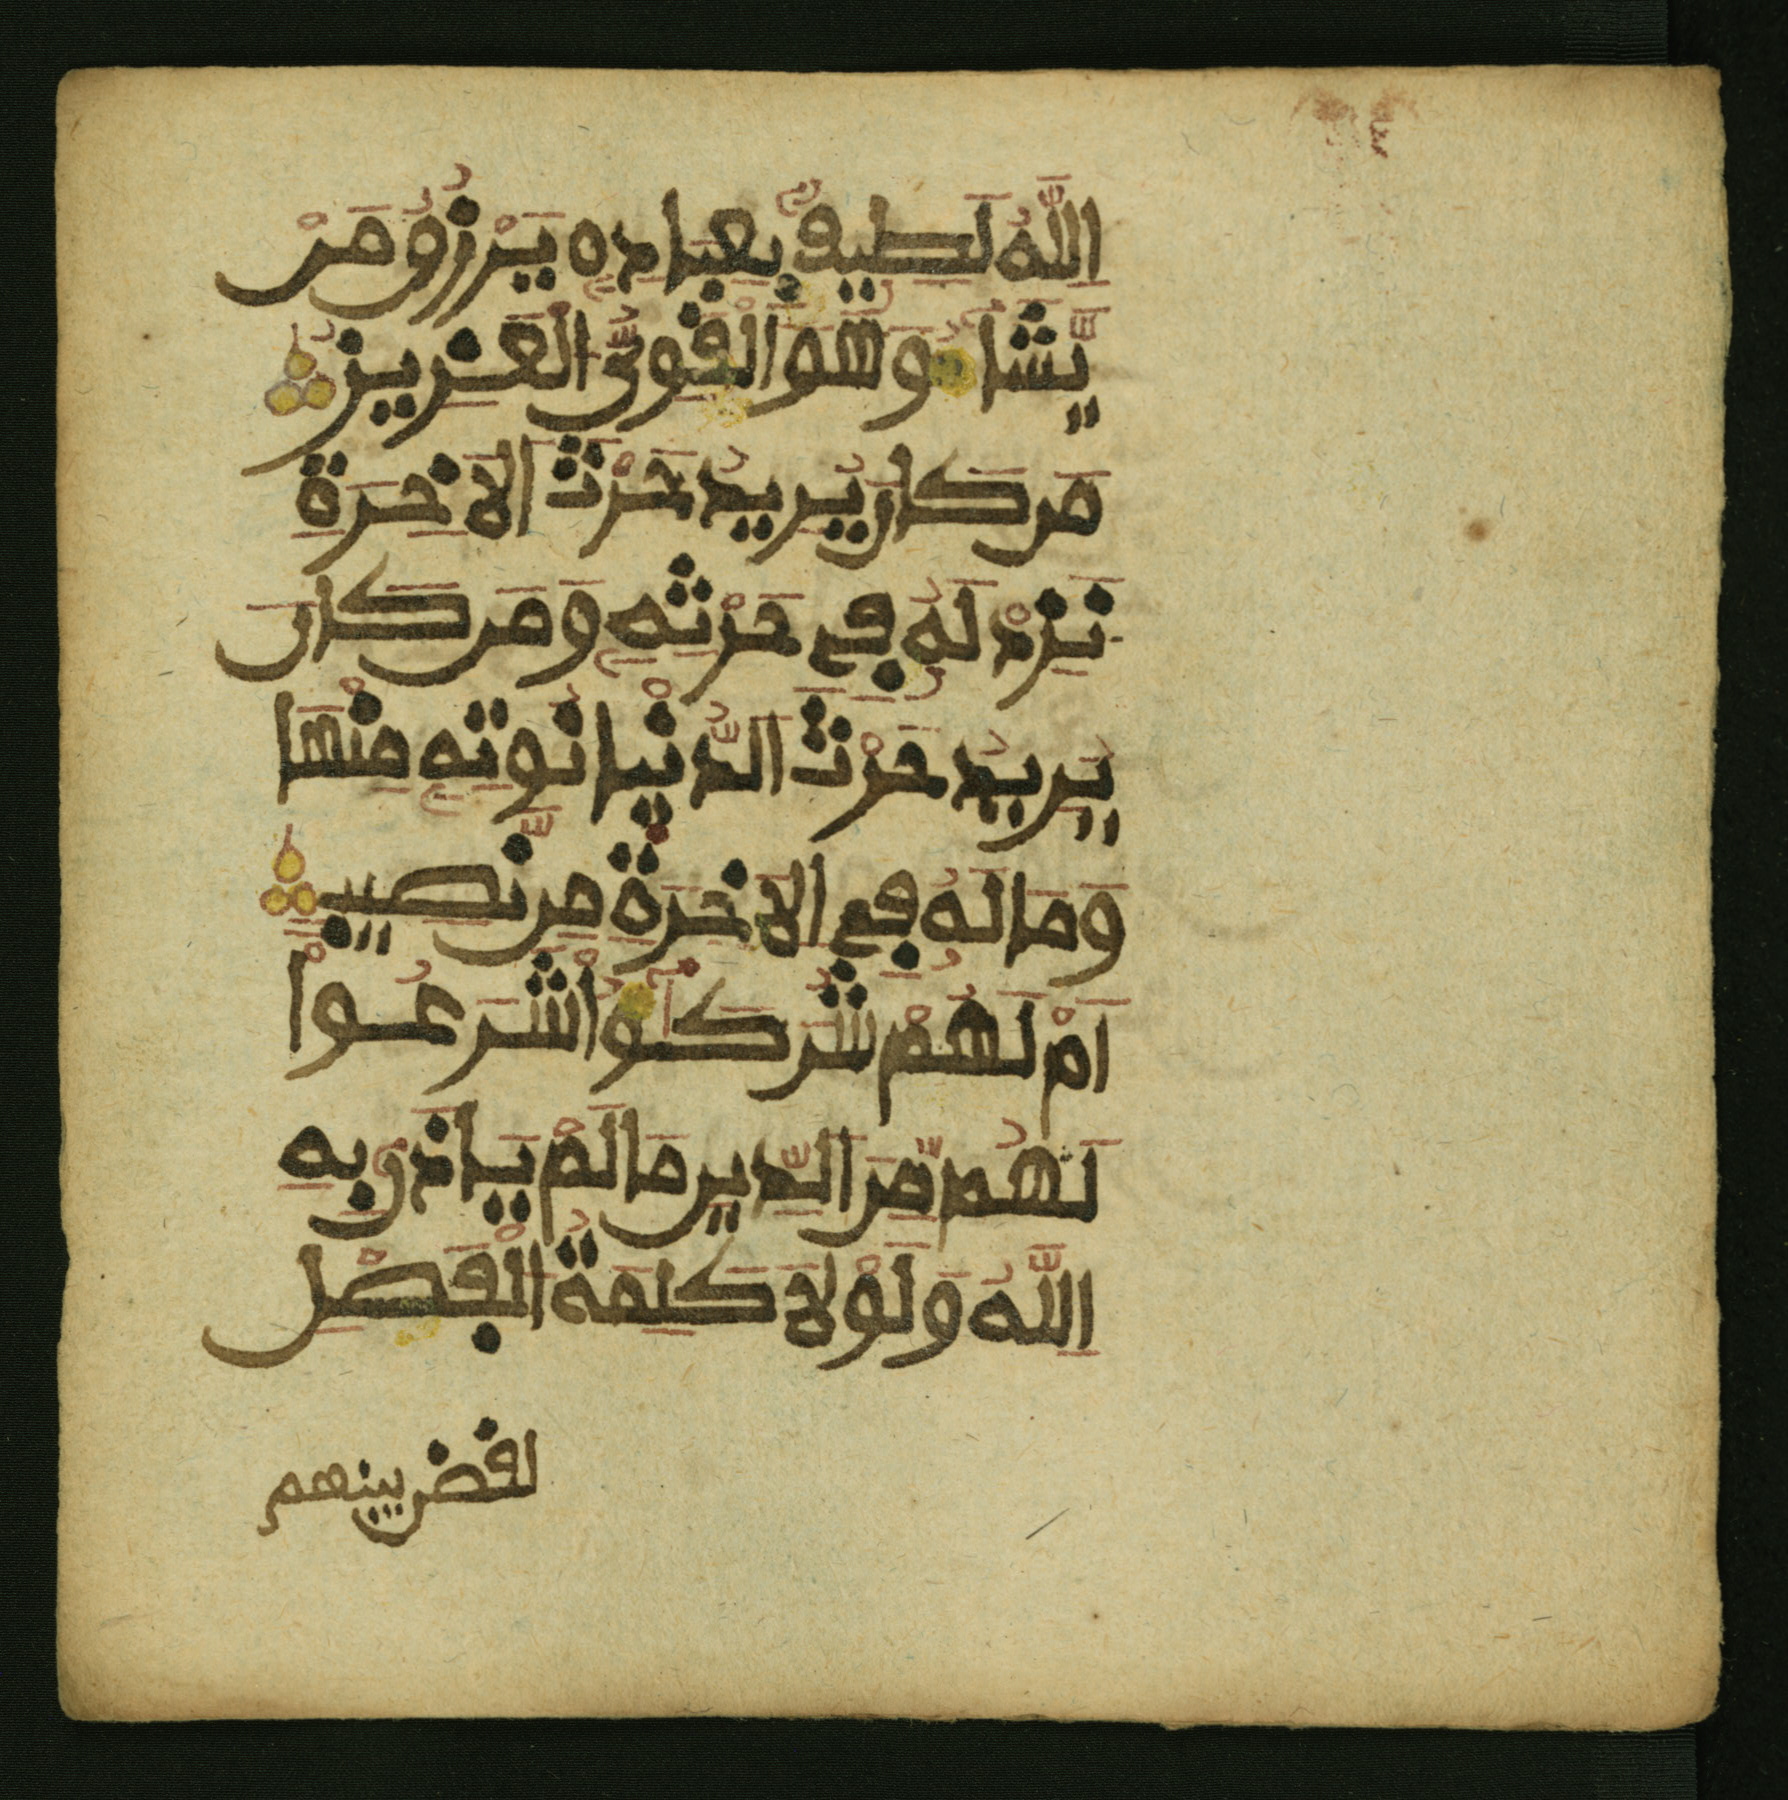 اِللَّهُ لَطِيفٌ بِعِبَادِهِ يَرْزُقُ مَنْ
يَّشَآءُ وَهُوَ الْقَوِيُّ الْعَزِيزُ
مَن كَانَ يُرِيدُ حَرْثَ الَاخِرَةِ
نَزِدْ لَهُ فِي حَرْثِهِ وَمَن كَانَ
يُرِيدُ حَرْثَ الدُّنْيَا نُوتِهِ مِنْهَا
وَمَا لَهُ فِي الَاخِرَةِ مِن نَّصِيبٍ
اَمْ لَهُمْ شُرَكَٰٓؤُاْ شَرَعُواْ
لَهُم مِّنَ الدِّينِ مَا لَمْ يَاذَنۢ بِهِ
اِللَّهُ وَلَوْلَا كَلِمَةُ الْفَصْلِ
لقض بينهم